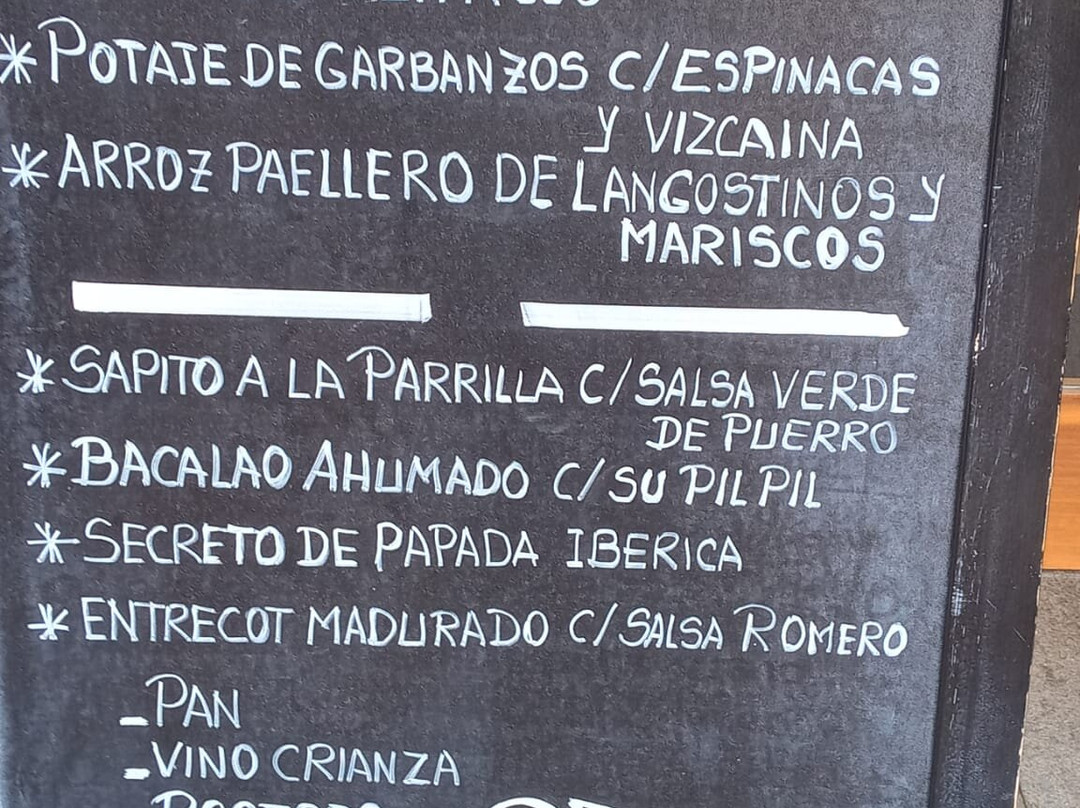 *POTAJE DE GARBANZOS C/ESPINACAS
Y VIZCAINA
*ARROZ PAELLERO DE LANGOSTINOS Y
MARISCOS
*SAPITO A LA PARRILLA C/SALSA VERDE
DE PUERRO
*BACALAO AHUMADO C/SU PIL PIL
*SECRETO DE PAPADA IBERICA
*ENTRECOT MADURADO C/SALSA ROMERO
-PAN
-VINO CRIANZA